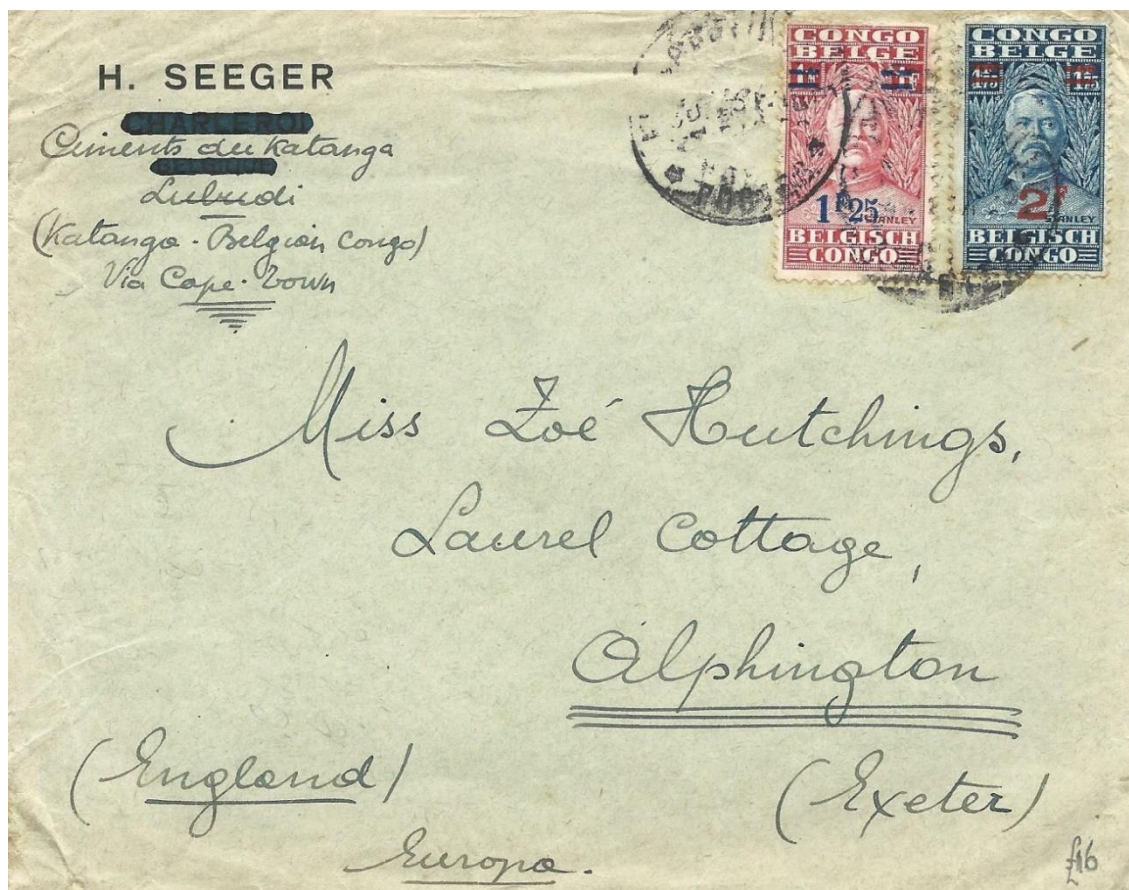 H. SEEGER
CHARLEROI
Ciments du Katanga
Lubudi
(Katanga - Belgian Congo)
Via Cape-Town
CONGO
BELGE
1F25
STANLEY
BELGISCH
CONGO
CONGO
BELGE
1.75 1.75
2F
STANLEY
BELGISCH
CONGO
Miss Zoé Hutchings,
Laurel Cottage,
Alphington
(England) (Exeter)
Europa.
£16